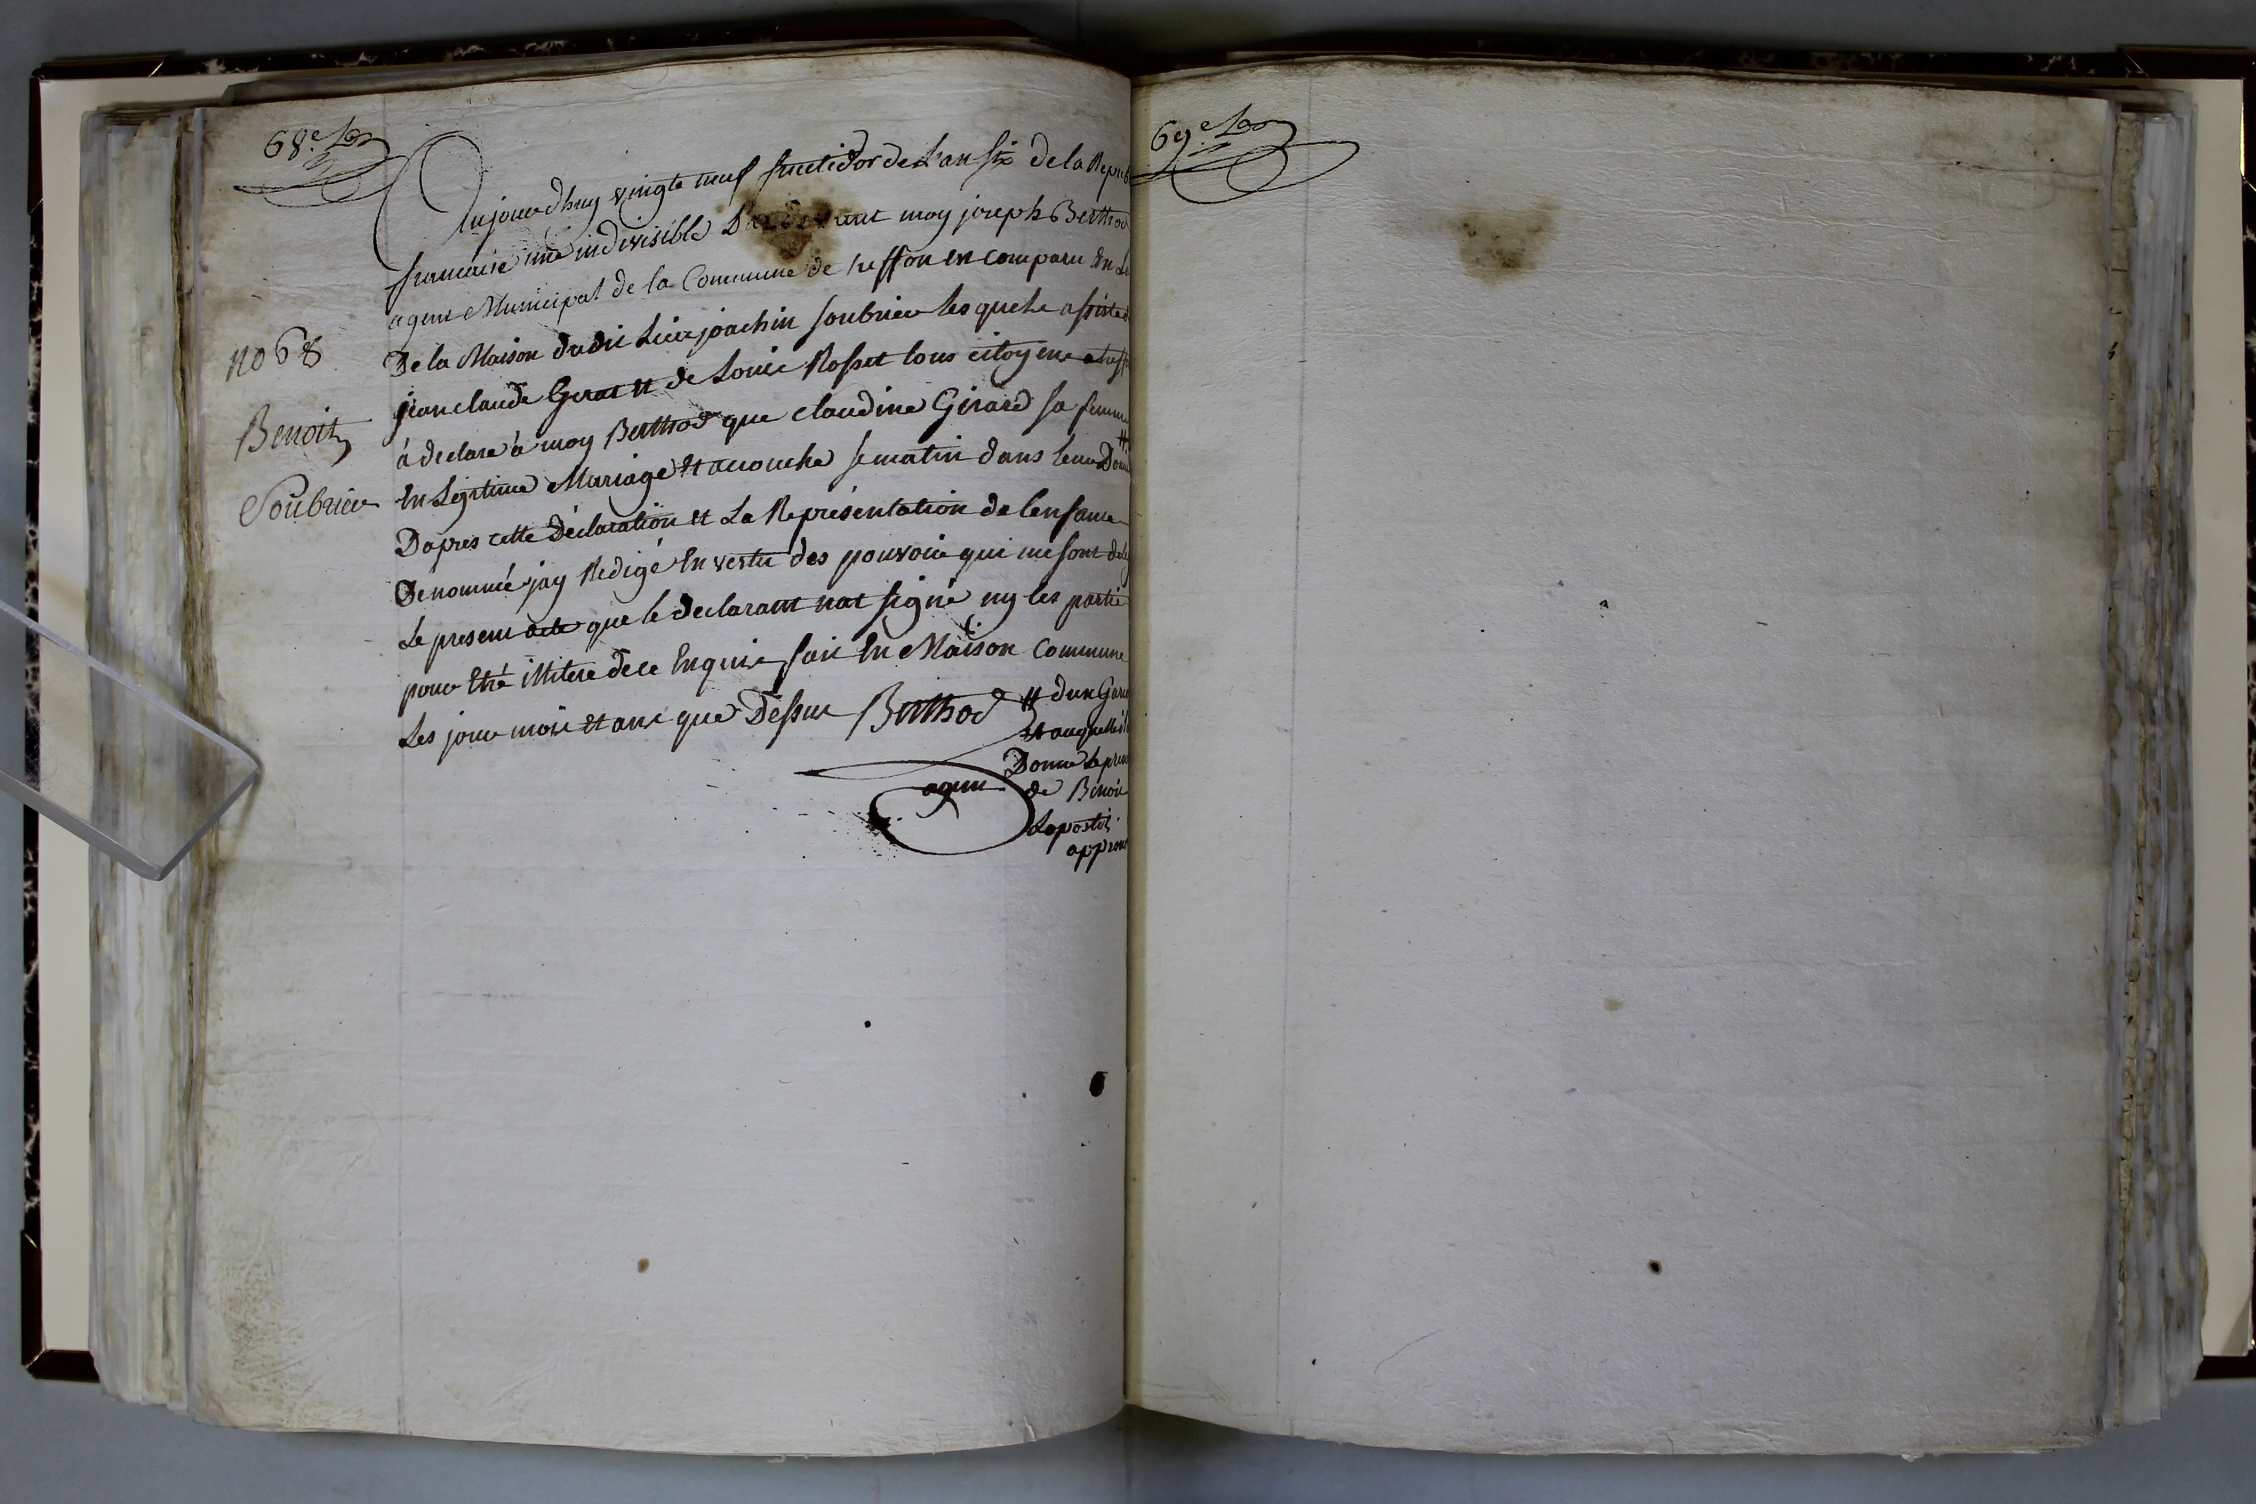 68.e
no 68
Benoit
Soubrier
Aujourdhuy vingte neuf fructidor de L'an six de la Repub
francaise une indivisible Pardevant moy joseph Berthod
agent Municipal de la Commune de treffon en comparu En
De la Maison dudit Lieu joachin soubrier lesquele assiste
jean claude Gerat et de Louis Rosset tous citoyene
à declare à moy Berthod que claudine Girard sa femme
En Legitime Mariage Et acouche se matin dans leur Dom
Dapres cette Déclaration et La Représentation de lenfant
Denommé jay Redigé En vertu des pouvoir qui me sont dele
Le present acte que le declarant nat signé ny les partie
pour Etre illitere de ce Enquis fait En Maison Commune
Les jour mois et ans que Dessus Berthod
agent
# dun Garc
Et auquel
Donne le pren
de Benoit
Lapostil
approuv
69.e